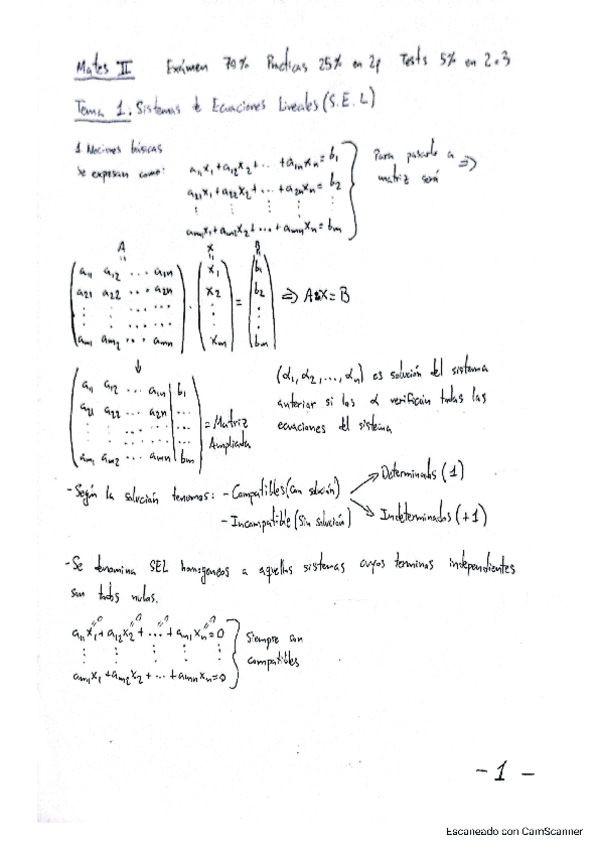 Mates II Exámen 70% Practicas 25% en 2p Tests 5% en 2.3
Tema 1. Sistemas de Ecuaciones Lineales (S.E.L)
1 Nociones básicas
Se expresan como:
a₁₁x₁+a₁₂x₂+ ... +a₁ₙxₙ=b₁
a₂₁x₁+a₂₂x₂+ ... +a₂ₙxₙ=b₂
⋮ ⋮ ⋮ ⋮
aₘ₁x₁+aₘ₂x₂+ ... +aₘₙxₙ=bₘ
Para pasarlo a
matriz será =>
A X B
a₁₁ a₁₂ ... a₁ₙ x₁ b₁
a₂₁ a₂₂ ... a₂ₙ · x₂ = b₂ => A·X=B
⋮ ⋮ ⋮ ⋮ ⋮
aₘ₁ aₘ₂ ... aₘₙ xₘ bₘ
↓
a₁₁ a₁₂ ... a₁ₙ | b₁
a₂₁ a₂₂ ... a₂ₙ | ...
... = Matriz
aₘ₁ aₘ₂ ... aₘₙ | bₘ Ampliada
(α₁, α₂, ..., αₙ) es solución del sistema
anterior si los α verifican todas las
ecuaciones del sistema
-Según la solución tenemos: -Compatibles (Con solución)
Determinados (1)
Indeterminados (+1)
-Incompatible (Sin solución)
-Se denomina SEL homogeneos a aquellos sistemas cuyos terminos independientes
son todos nulos.
a₁₁x₁+a₁₂x₂+ ... +aₘ₁xₙ=0
⋮ ⋮ ⋮ ⋮ ⋮
aₘ₁x₁+aₘ₂x₂+ ... +aₘₙxₙ=0
Siempre son
compatibles
-1-
Escaneado con CamScanner